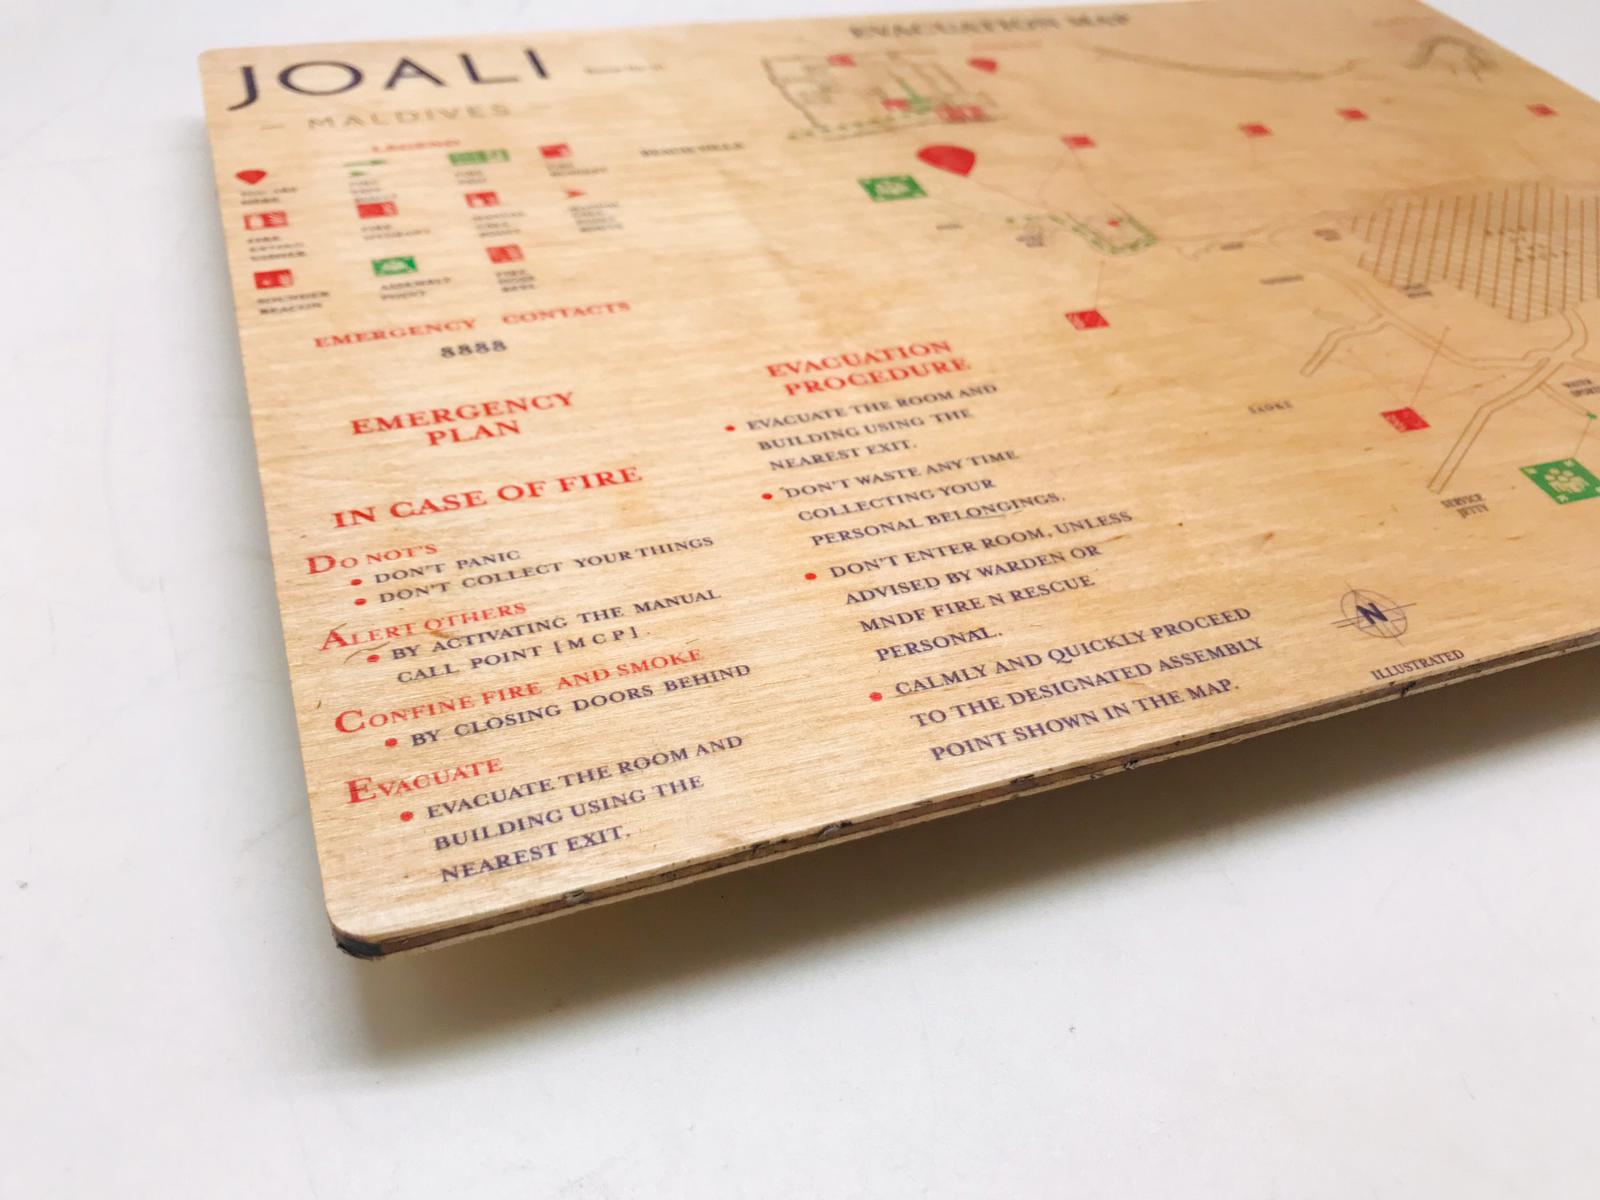 JOALI
— MALDIVES —
EVACUATION MAP
LEGEND
BEACH VILLA
YOU ARE
HERE
SOUNDER
BEACON
ASSEMBLY
POINT
FIRE
HOSE
REEL
EMERGENCY CONTACTS
8888
EMERGENCY
PLAN
IN CASE OF FIRE
DO NOT'S
• DON'T PANIC
• DON'T COLLECT YOUR THINGS
ALERT OTHERS
• BY ACTIVATING THE MANUAL
CALL POINT [MCP].
CONFINE FIRE AND SMOKE
• BY CLOSING DOORS BEHIND
EVACUATE
• EVACUATE THE ROOM AND
BUILDING USING THE
NEAREST EXIT.
EVACUATION
PROCEDURE
• EVACUATE THE ROOM AND
BUILDING USING THE
NEAREST EXIT.
• DON'T WASTE ANY TIME
COLLECTING YOUR
PERSONAL BELONGINGS.
• DON'T ENTER ROOM, UNLESS
ADVISED BY WARDEN OR
MNDF FIRE N RESCUE
PERSONAL.
• CALMLY AND QUICKLY PROCEED
TO THE DESIGNATED ASSEMBLY
POINT SHOWN IN THE MAP.
SAOKE
SERVICE
JETTY
WATER
SPORTS
N
ILLUSTRATED